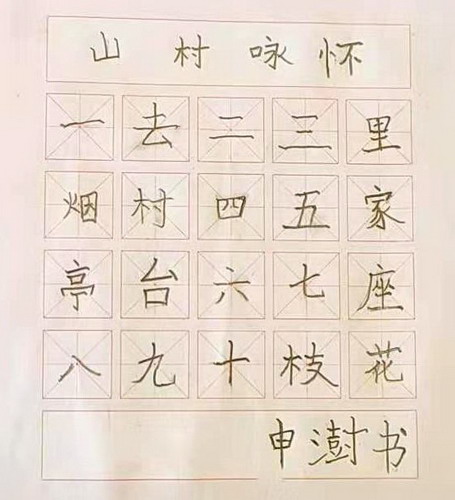 山村咏怀
一去二三里
烟村四五家
亭台六七座
八九十枝花
申澍书